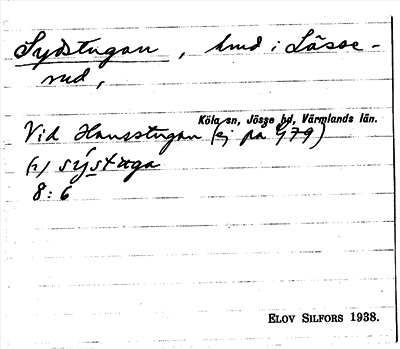 Sydstugan, hmd i Låsse-
rud,
Köla sn, Jösse hd, Värmlands län.
Vid Hansstugan (ej på G79)
(1) sýstuga
8:6
ELOV SILFORS 1938.